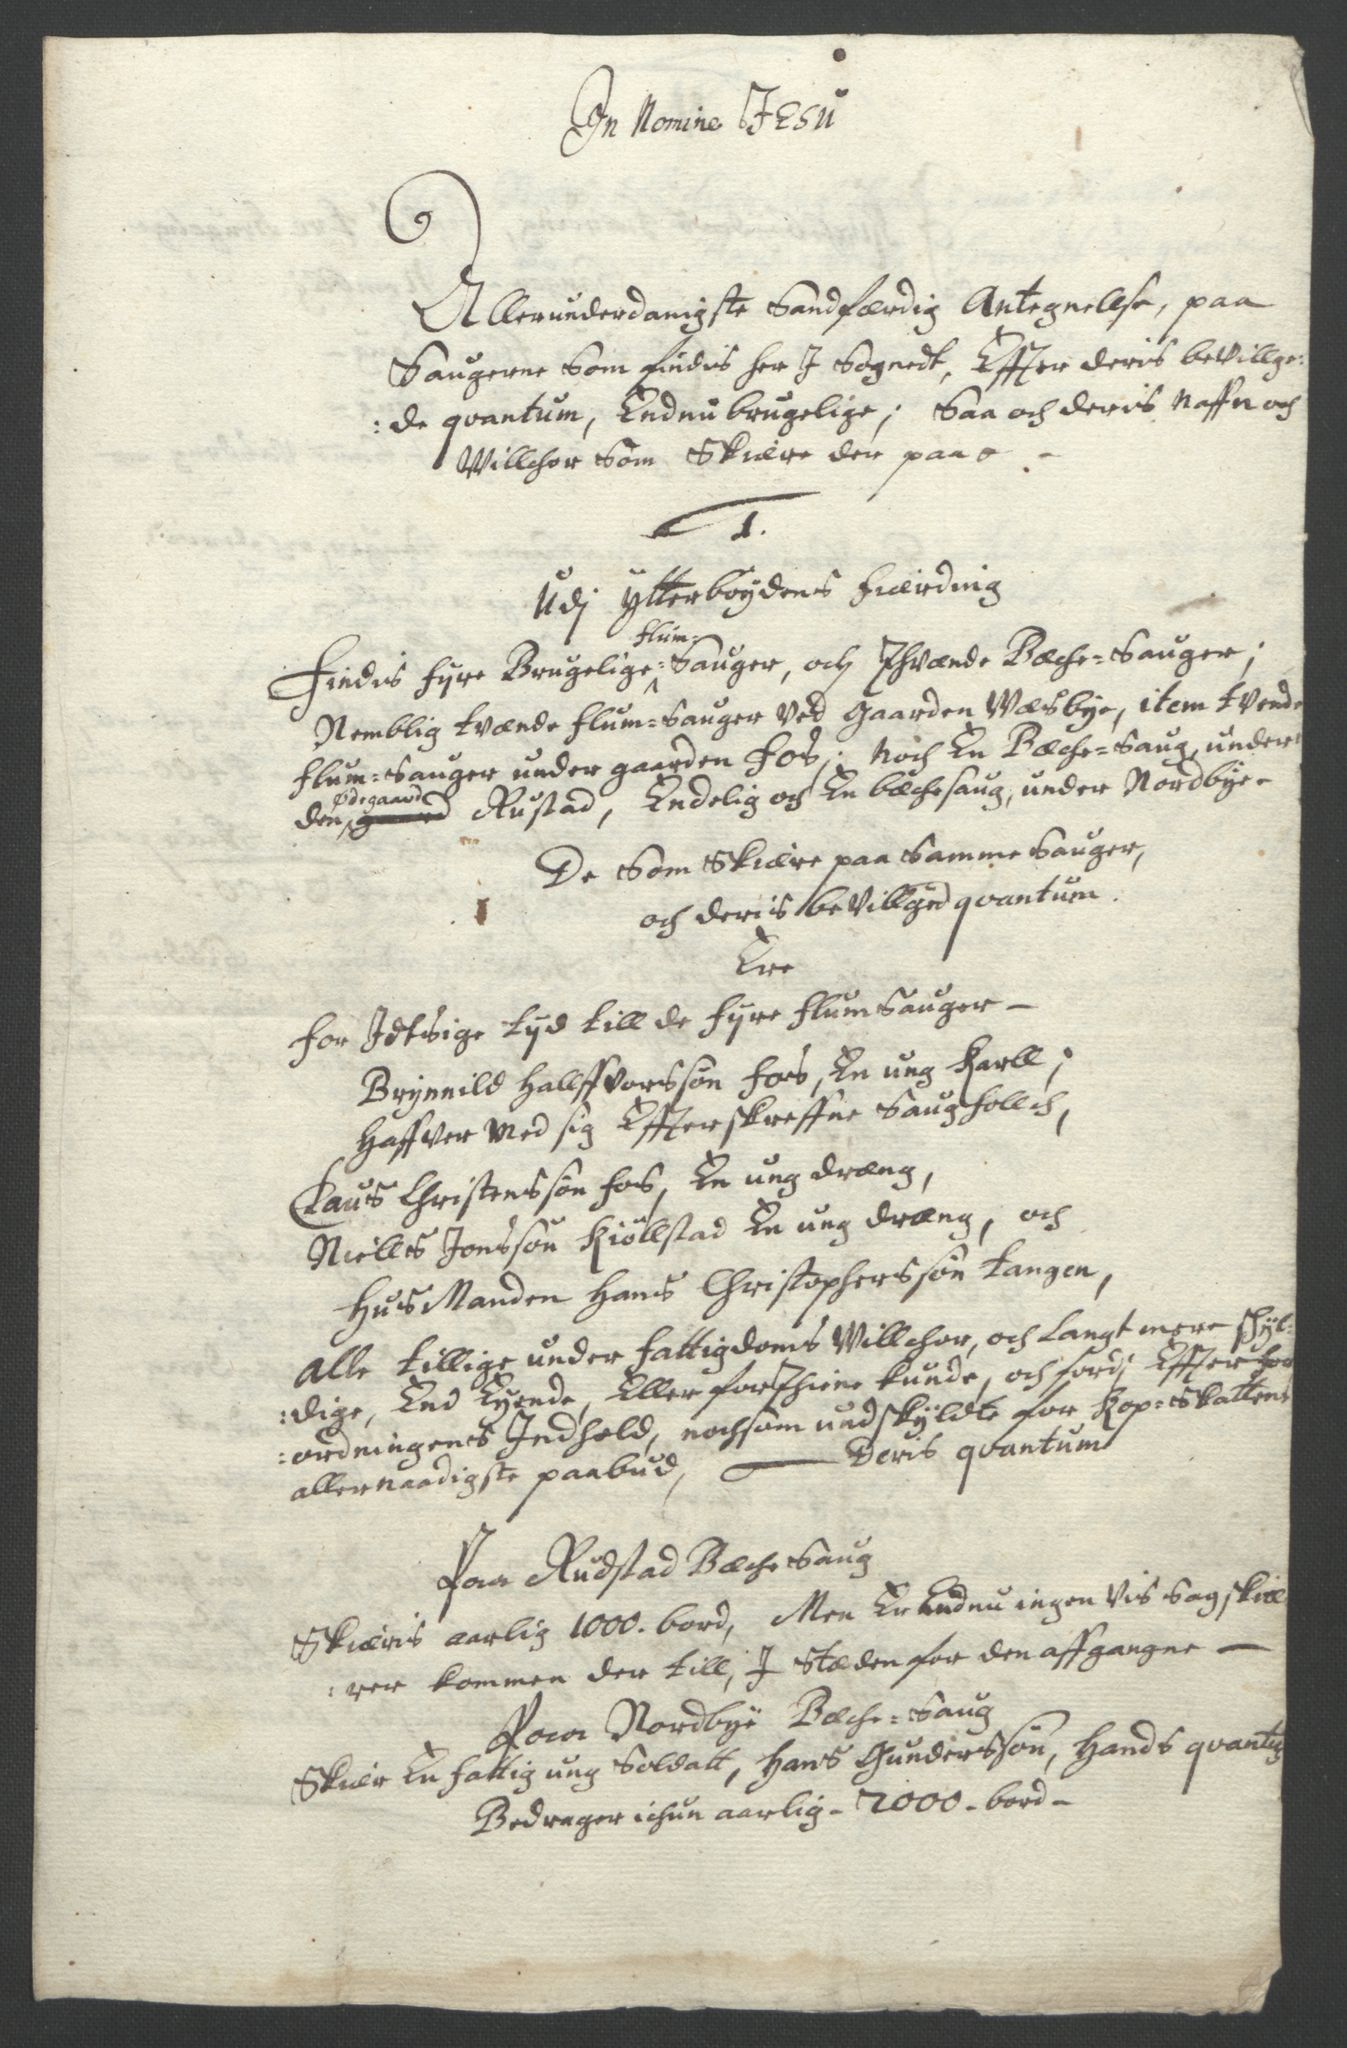 In Nomine JESU
Allerunderdanigste Sandfærdig Antegnellse, paa
Saugerne Som findis her J Sognedt, Effter deris beVillge:
:de qvantum, Endnu brugelige; Saa och deris Naffn och
Willchor Som Skiære der paa -
1.
Udj Ytterböydens fiærding
flum-
Findis fyre Brugelige: Sauger, och Thvænde Bæche=Sauger;
Nemblig tvænde flum=Sauger Ved Gaarden Wæsbye, item tvende
flum=Sauger under gaarden Fos; Noch En Bæche=Saug, under
Ødegaard
den gaard Rustad, Endelig och En bæchesaug, under Nordbye-
De Som Skiære paa Samme Sauger,
och deris beVillged qvantum.
Ere
for Idtsige tyd till de fyre flum Sauger -
Brynnild Hallffvorssön Fos, En ung Karll;
Haffver Med sig Effterskreffne Saug folch,
Claus Christenssön Fos, En ung dræng,
Nielles Jonssön Kiöllstad En ung dræng, och
HusManden Hans Christopherssön Tangen,
Alle tillige under fattigdoms Willchor, och Langt mere skÿl:
:dige, End Eyende, Eller forthiene kunde, och fordj Effter for
:ordningens Indhold, nochsom undskÿldte for Kop=Skattens
allernaadigste paabud, — Deris qvantum
Paa Rudstad Bæche Saug
Skiæris aarlig 1000. bord, Men Er Endnu ingen Vis Sag skiæ
:rer kommen der till, J Stæden for den affgangne —
Paa Nordbye Bæche=Saug
Skiær En fattig ung Soldatt, Hans Gunderssön, Hands qvantum
Bedrager ichun aarlig - 2000 - bord -